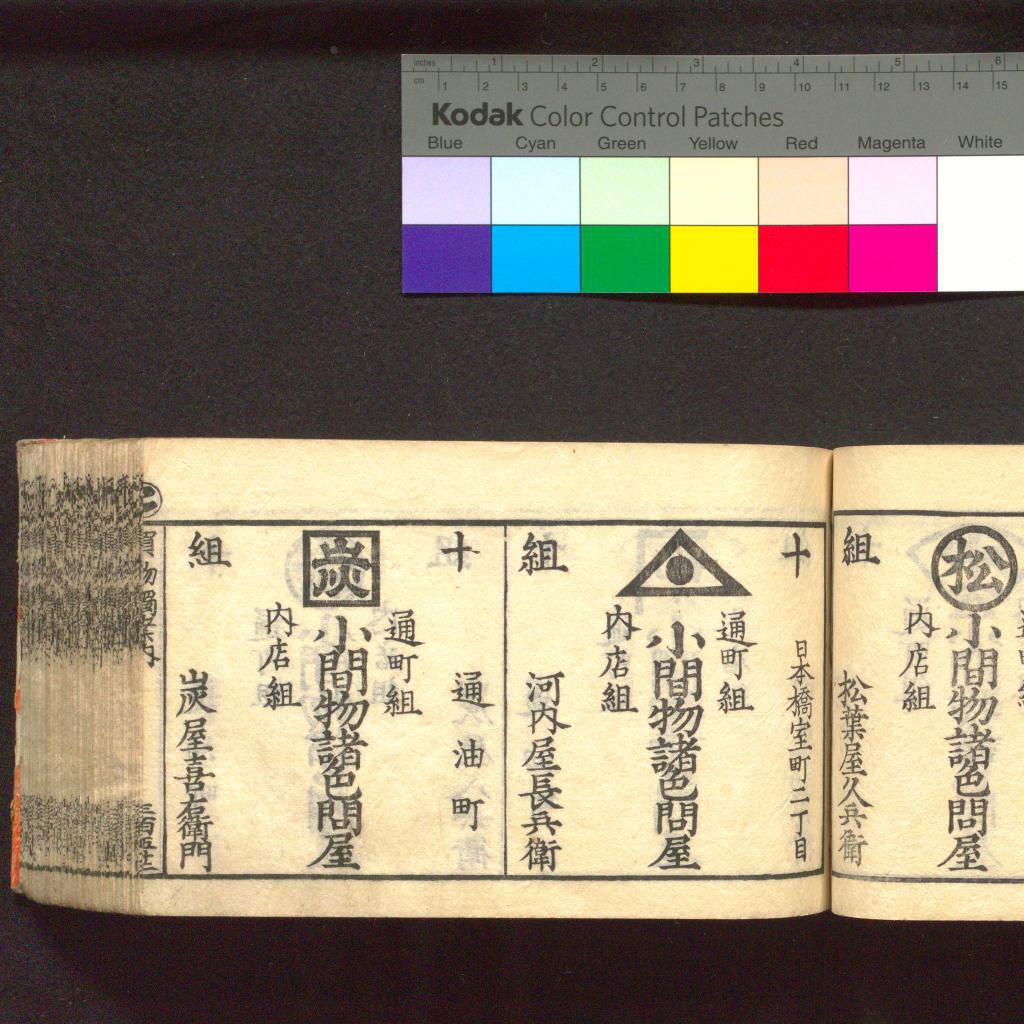 inches 1 2 3 4 5 6
cm 1 2 3 4 5 6 7 8 9 10 11 12 13 14 15
Kodak Color Control Patches
Blue Cyan Green Yellow Red Magenta White
松
小間物諸色問屋
内店組
組
松葉屋久兵衛
十
日本橋室町二丁目
通町組
小間物諸色問屋
内店組
組
河内屋長兵衛
十
通油町
炭
通町組
小間物諸色問屋
内店組
組
炭屋喜右衛門